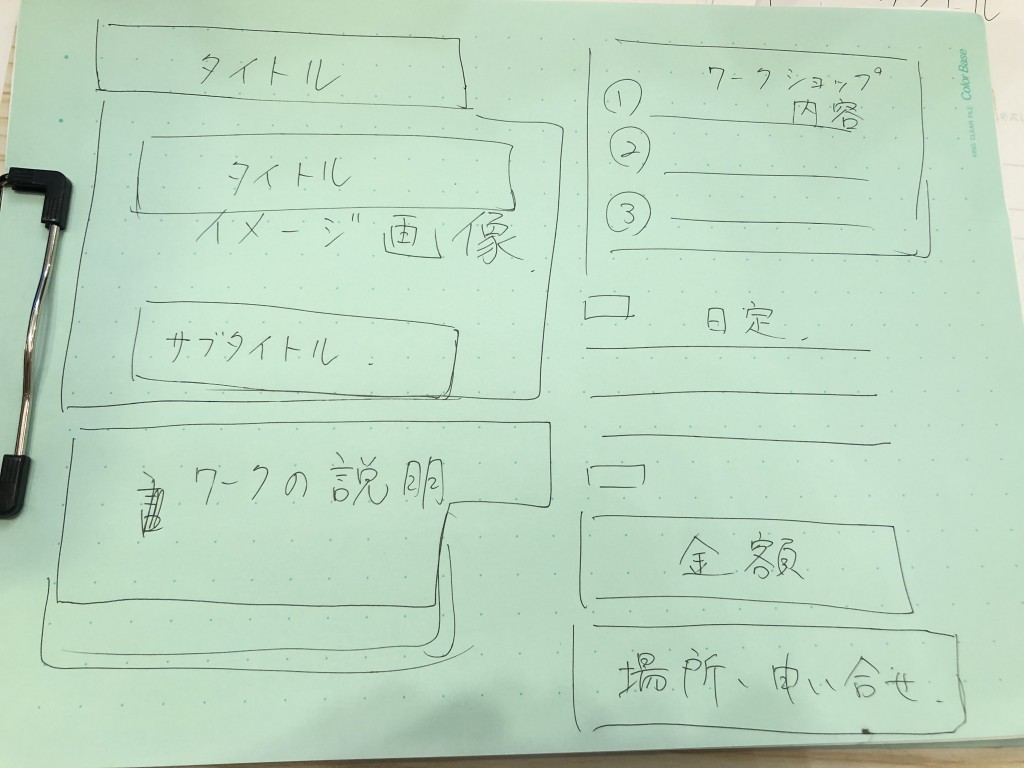 タイトル
タイトル
イメージ画像
サブタイトル
ワークの説明
ワークショップ
内容
①
②
③
日定
金額
場所、申い合せ
Color Base